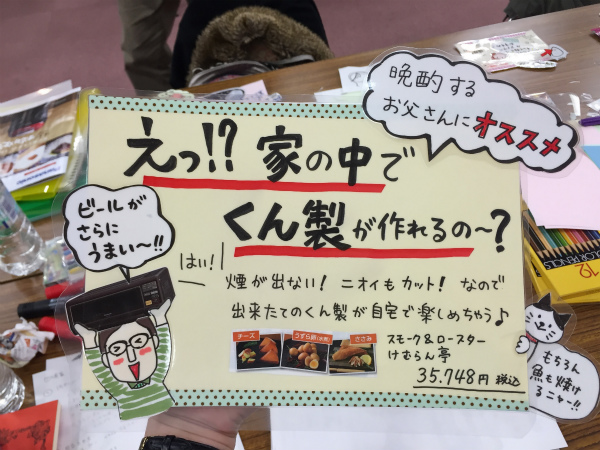 晩酌する
お父さんにオススメ
えっ!? 家の中で
くん製が作れるの〜?
ビールが
さらに
うまい〜!!
はい!
煙が出ない! ニオイもカット! なので
出来たてのくん製が自宅で楽しめちゃう♪
チーズ
うずら卵(水煮)
ささみ
スモーク&ロースター
けむらん亭
35,748円 税込
もちろん
魚も焼け
るニャー!!
12
COLOR PENCILS